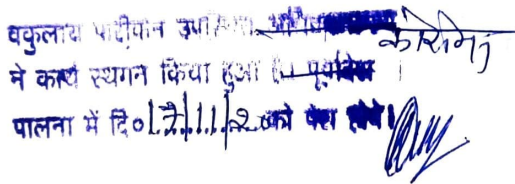 वकुलाय पार्टीयान उपस्थित
ने कार्य स्थगन किया हुआ है। पूर्वादेश
पालना में दि० 17/11/2 को पेश होवे।